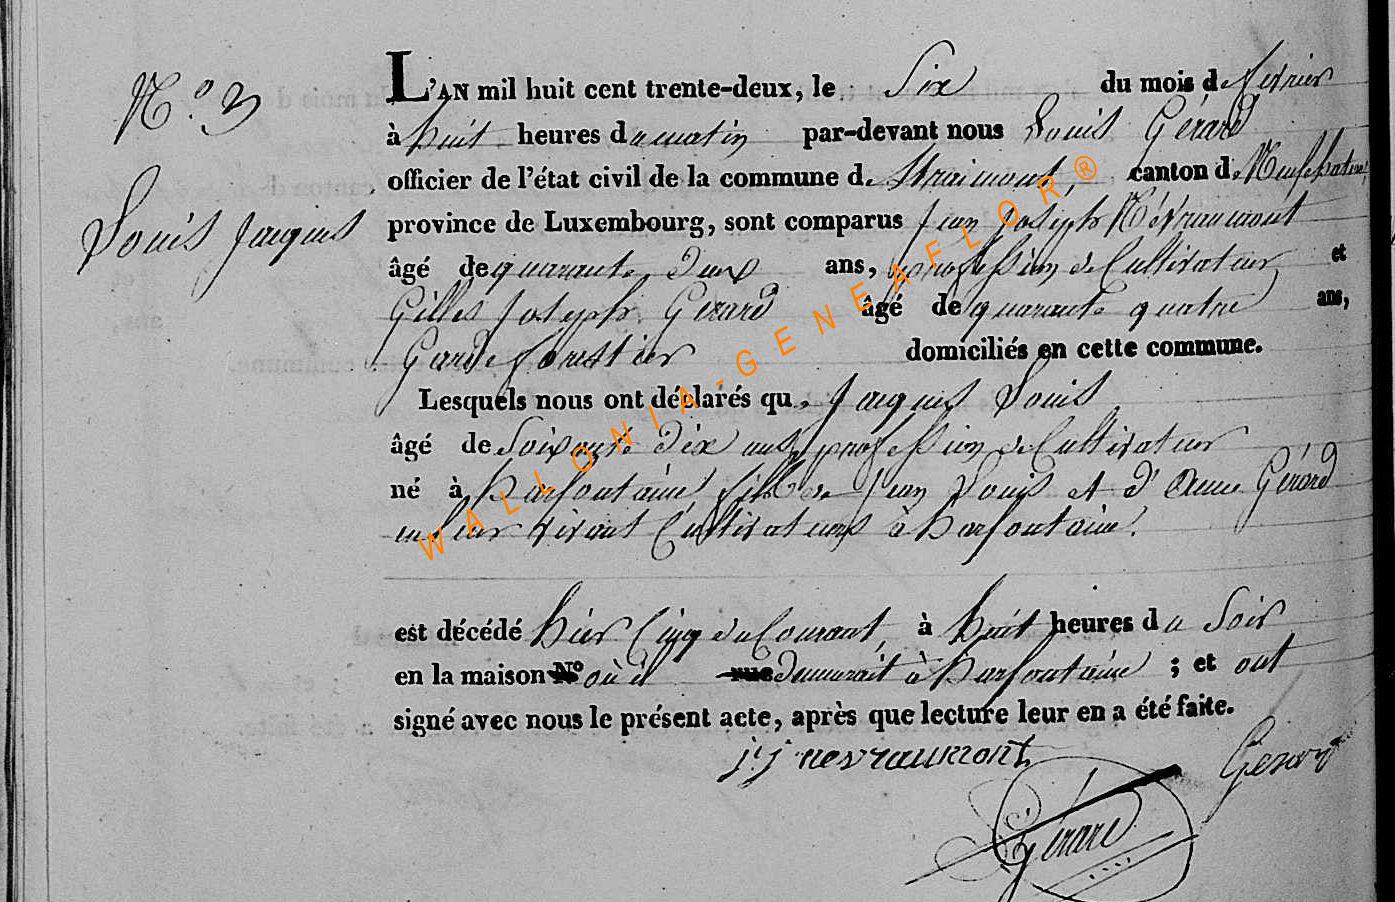 N.° 3
Louis Jacques
L'AN mil huit cent trente-deux, le Six du mois de fevrier
à huit heures du matin par-devant nous Louis Gérard
officier de l'état civil de la commune de Straimont, canton de Neufchateau
province de Luxembourg, sont comparus Jean Joseph Névraumont
âgé de quarante deux ans, profession de Cultivateur, et
Gilles Joseph Gerard âgé de quarante quatre ans,
Garde forestier domiciliés en cette commune.
Lesquels nous ont déclarés que Jacques Louis
âgé de Soixante dix ans, profession de Cultivateur
né à harfontaine fils de Jean Louis et d'Anne Gérard
en leur vivant Cultivateurs à harfontaine.
est décédé hier Cinq du Courant, à huit heures du Soir
en la maison N° où il rue demeurait à harfontaine ; et ont
signé avec nous le présent acte, après que lecture leur en a été faite.
j.j nevraumont
Gerard
Gérard
WALLONIA-GENEAFLOR®